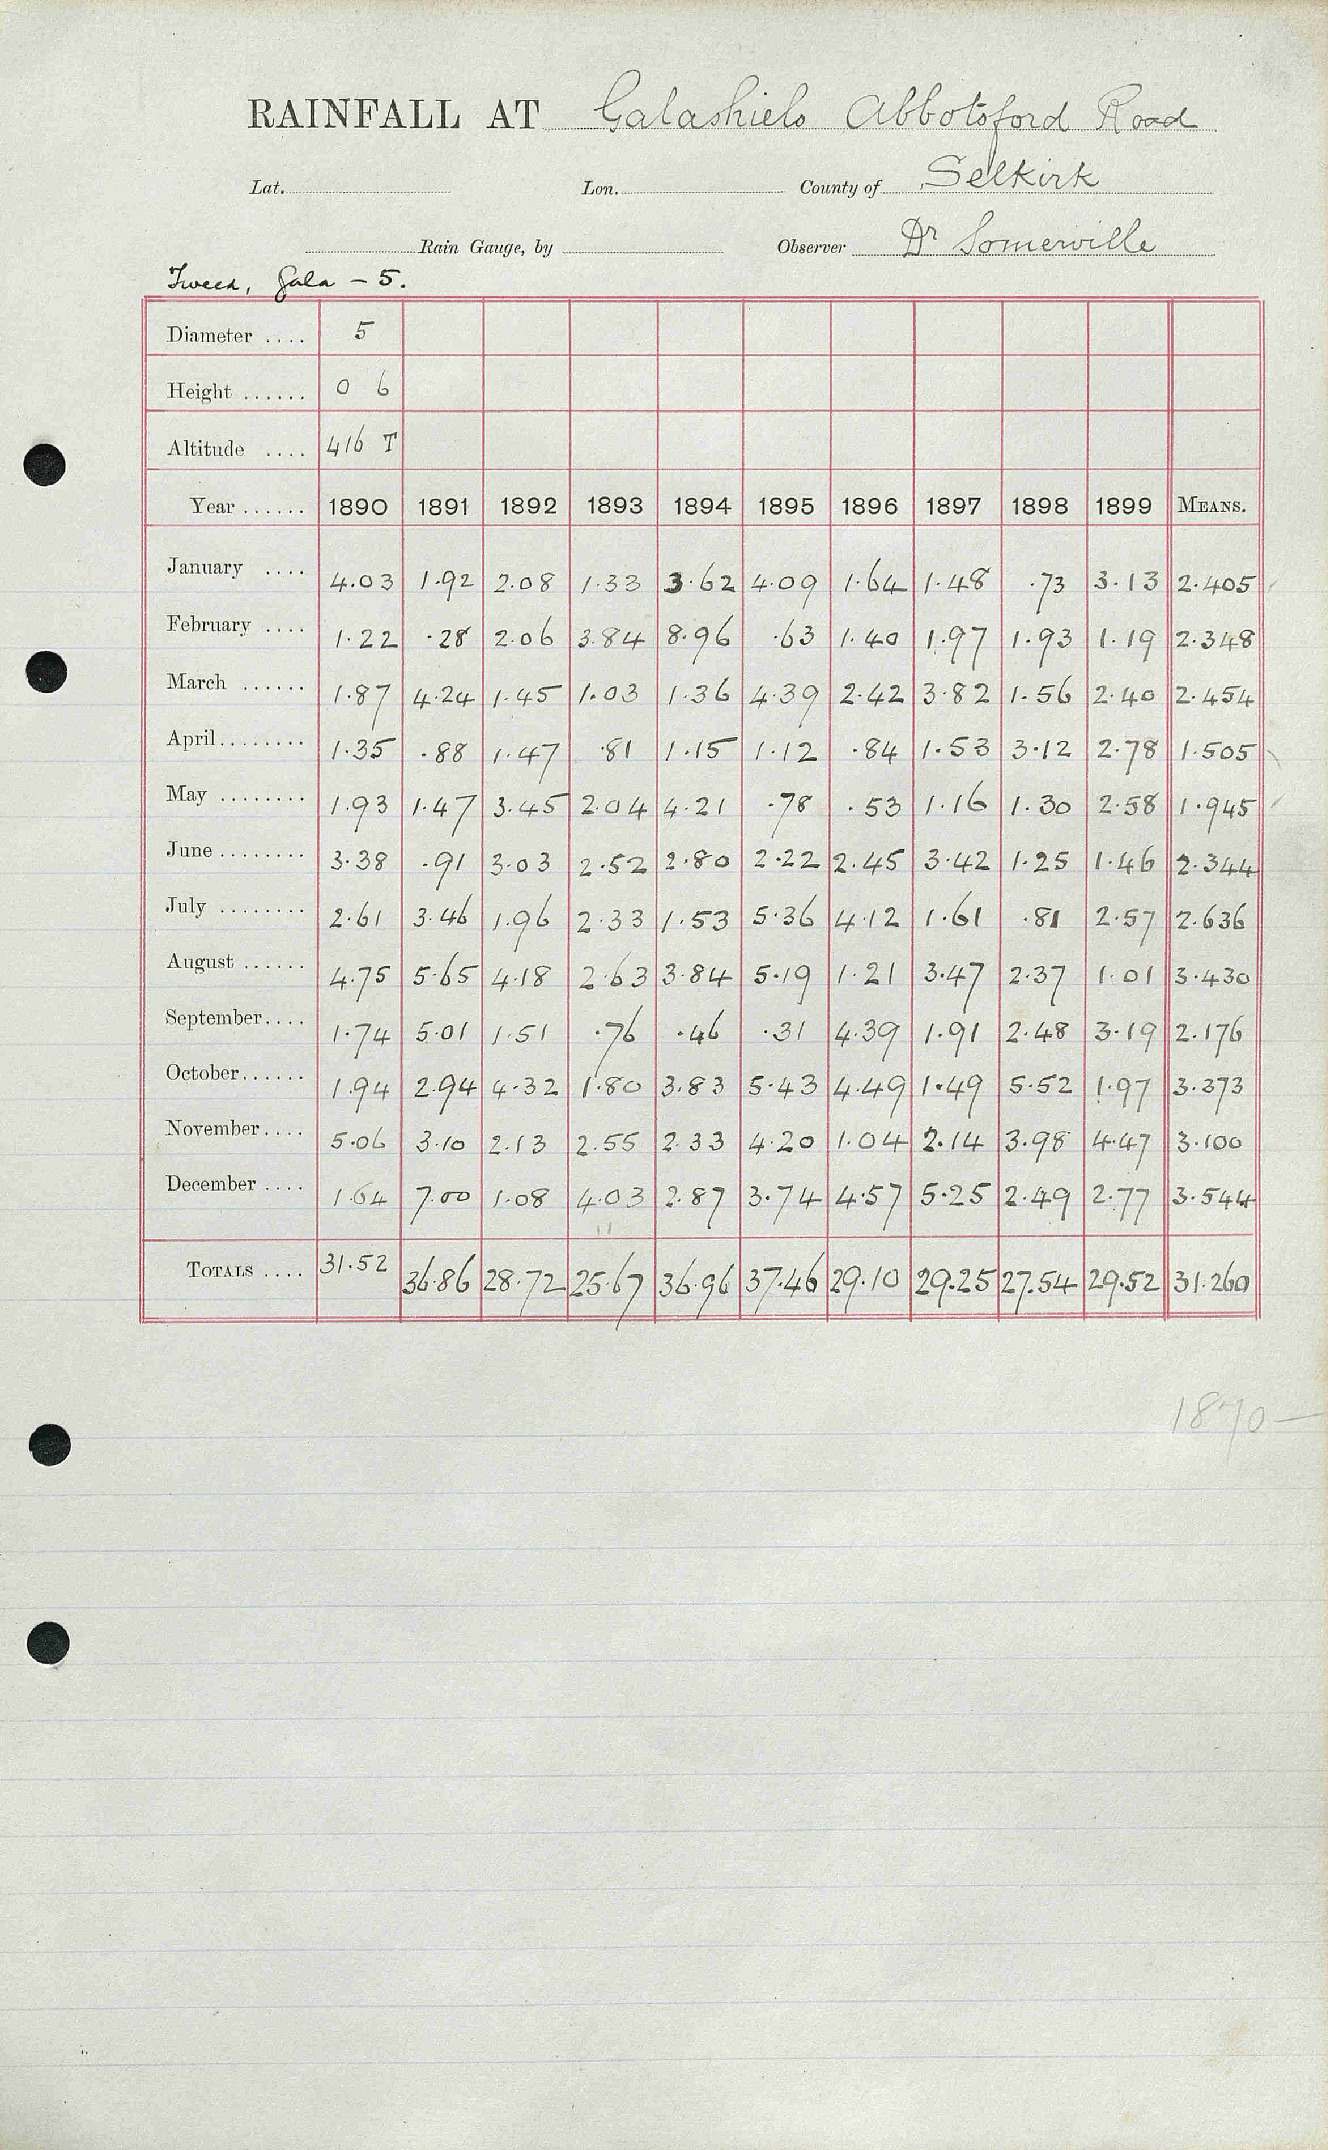 RAINFALL AT Galashiels Abbotsford Road
Lat. Lon. County of Selkirk
Rain Gauge, by Observer Dr Somerville
Tweed, Gala - 5.
Diameter .... 5
Height ...... 0 6
Altitude .... 416 T
Year ...... 1890 1891 1892 1893 1894 1895 1896 1897 1898 1899 MEANS.
January .... 4.03 1.92 2.08 1.33 3.62 4.09 1.64 1.48 .73 3.13 2.405
February .... 1.22 .28 2.06 3.84 8.96 .63 1.40 1.97 1.93 1.19 2.348
March ...... 1.87 4.24 1.45 1.03 1.36 4.39 2.42 3.82 1.56 2.40 2.454
April........ 1.35 .88 1.47 .81 1.15 1.12 .84 1.53 3.12 2.78 1.505
May ........ 1.93 1.47 3.45 2.04 4.21 .78 .53 1.16 1.30 2.58 1.945
June ........ 3.38 .91 3.03 2.52 2.80 2.22 2.45 3.42 1.25 1.46 2.344
July ........ 2.61 3.46 1.96 2.33 1.53 5.36 4.12 1.61 .81 2.57 2.636
August ...... 4.75 5.65 4.18 2.63 3.84 5.19 1.21 3.47 2.37 1.01 3.430
September.... 1.74 5.01 1.51 .76 .46 .31 4.39 1.91 2.48 3.19 2.176
October...... 1.94 2.94 4.32 1.80 3.83 5.43 4.49 1.49 5.52 1.97 3.373
November.... 5.06 3.10 2.13 2.55 2.33 4.20 1.04 2.14 3.98 4.47 3.100
December .... 1.64 7.00 1.08 4.03 2.87 3.74 4.57 5.25 2.49 2.77 3.544
TOTALS .... 31.52 36.86 28.72 25.67 36.96 37.46 29.10 29.25 27.54 29.52 31.260
1870-